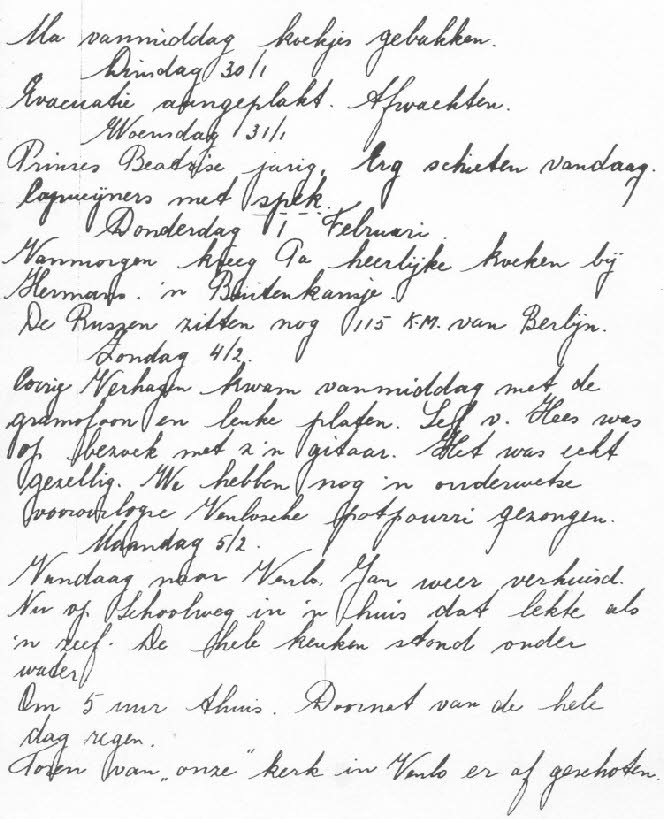 Ma vanmiddag koekjes gebakken.
Dinsdag 30/1
Evacuatie aangeplakt. Afwachten.
Woensdag 31/1
Prinses Beatrixe jarig. Erg schieten vandaag.
Capucijners met spek.
Donderdag 1 Februari.
Vanmorgen kreeg Pa heerlijke koeken bij
Hermans. 'n Buitenkansje.
De Russen zitten nog 115 K.M. van Berlijn.
Zondag 4/2.
Verhagen kwam vanmiddag met de
gramofoon en leuke platen. v. Hees was
op bezoek met z'n gitaar. Het was echt
gezellig. We hebben nog 'n ouderwetse
vooroorlogse Venlosche potpourri gezongen.
Maandag 5/2.
Vandaag naar Venlo. Jan weer verhuisd.
Nu op Schoolweg in 'n huis dat lekte als
'n zeef. De hele keuken stond onder
water
Om 5 uur thuis. Doornat van de hele
dag regen.
Toren van „onze" kerk in Venlo er af geschoten.